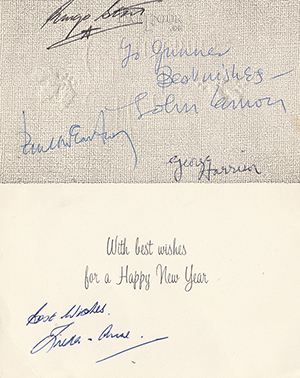 Ringo Starr
To Gunner
Best wishes -
John Lennon
Paul McCartney
George
Harrison
With best wishes
for a Happy New Year
Best Wishes.